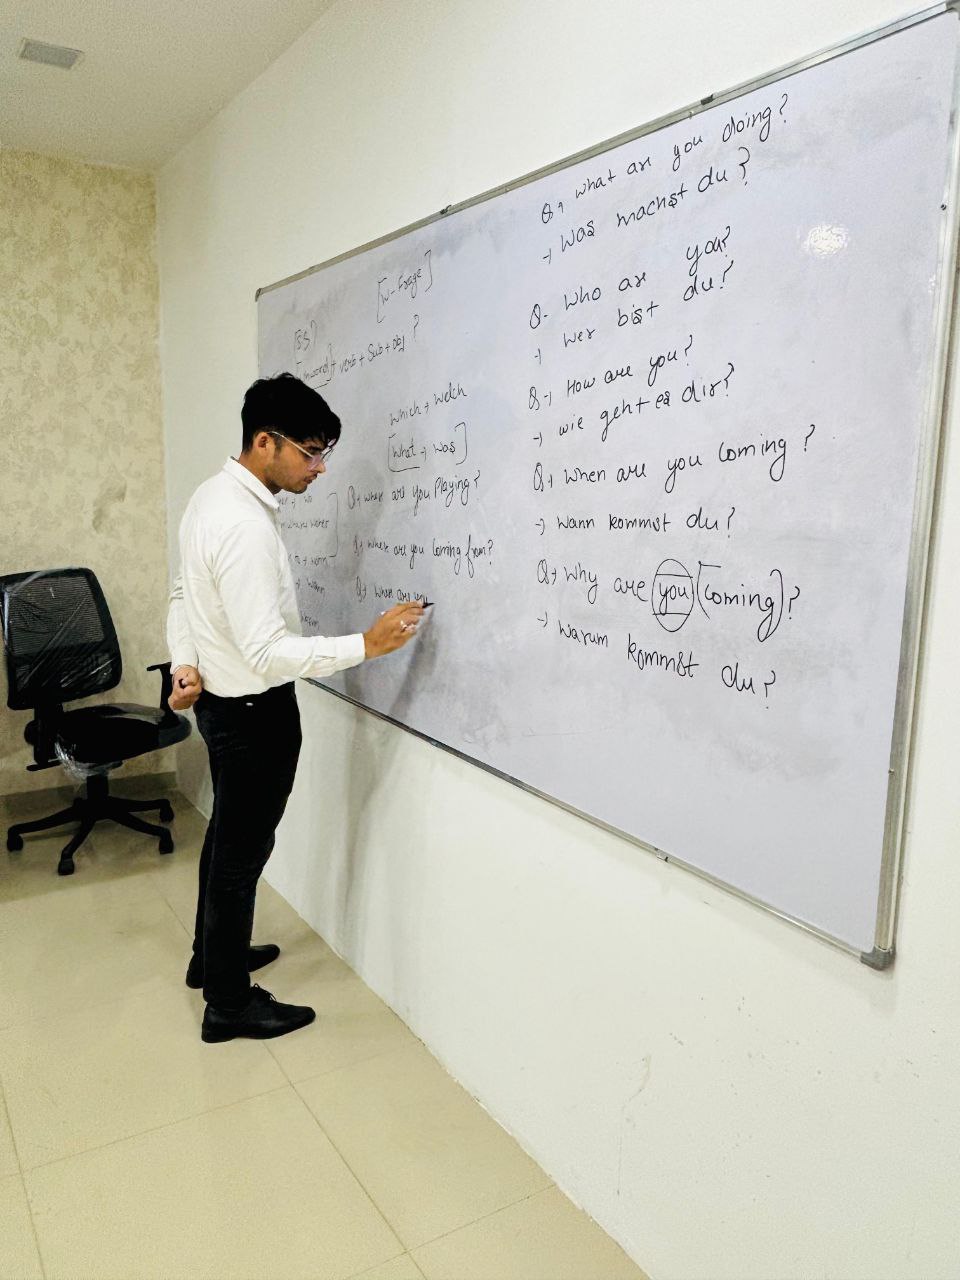 [W-Frage]
verb + Sub + obj ?
which → welch
[what → was]
Q→ where are you Playing?
Q→ where are you Coming from?
Q→ are you
wo
wann
Q→ what are you doing?
→ Was machst du?
Q- who are you?
→ wer bist du?
Q→ How are you?
→ wie geht es dir?
Q→ when are you Coming ?
→ wann kommst du?
Q→ Why are you (Coming)?
→ warum kommst du?